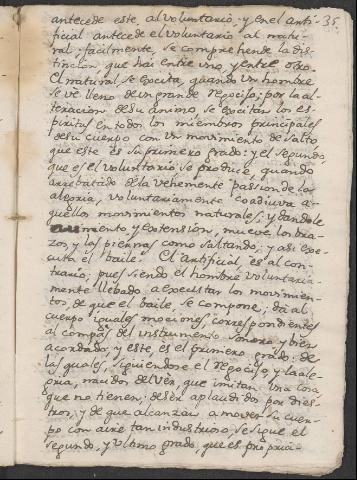 antecede este, al voluntario: y en el arti- 35
ficial antecede el voluntario al natu-
ral: facilmente, se comprehende la dis-
tincion que hai entre uno, y entre otro.
El natural se excita, quando un hombre
se vè lleno de un grande regocijo; por la al-
teracion de su animo, se excitan los es-
piritus en todos los miembros principales
de su cuerpo con un movimiento de salto
que este es su primero grado: y el segundo
que es el voluntario se produce, quando
arrebatado de la vehemente passion de la
alegria, voluntariamente coadiuva a-
quellos movimientos naturales, y dandole
aumento, y extension, mueve los bra-
zos, y las piernas como saltando; y asi exe-
cuta el baile. El artificial es al con-
trario; pues siendo el hombre voluntaria-
mente llebado a executar los movimien-
tos, de que el baile se compone; dá al
cuerpo iguales mociones, correspondientes
al compás del instrumento sonoro, y bien
acordado, y este, es el primero grado: de
las quales, siguiendose el regocijo, y la ale-
gria, nacidos del ver, que imitan una cosa
que no tienen; de ser aplaudidos por dies-
tros, y de que alcanzan a mover su cuer-
po con aire tan industrioso, se sigue el
segundo, y ultimo grado, que es propria-